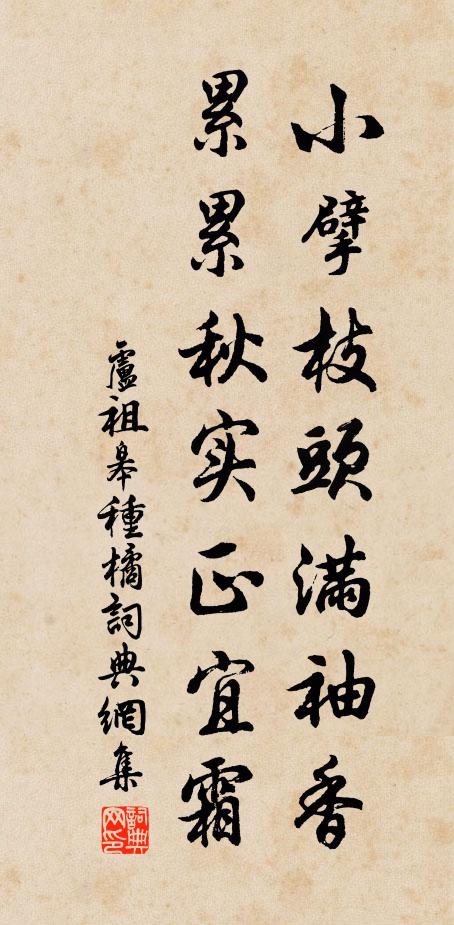 小擘枝頭滿袖香
累累秋实正宜霜
盧祖皋種橘詞典網集
詞典网印